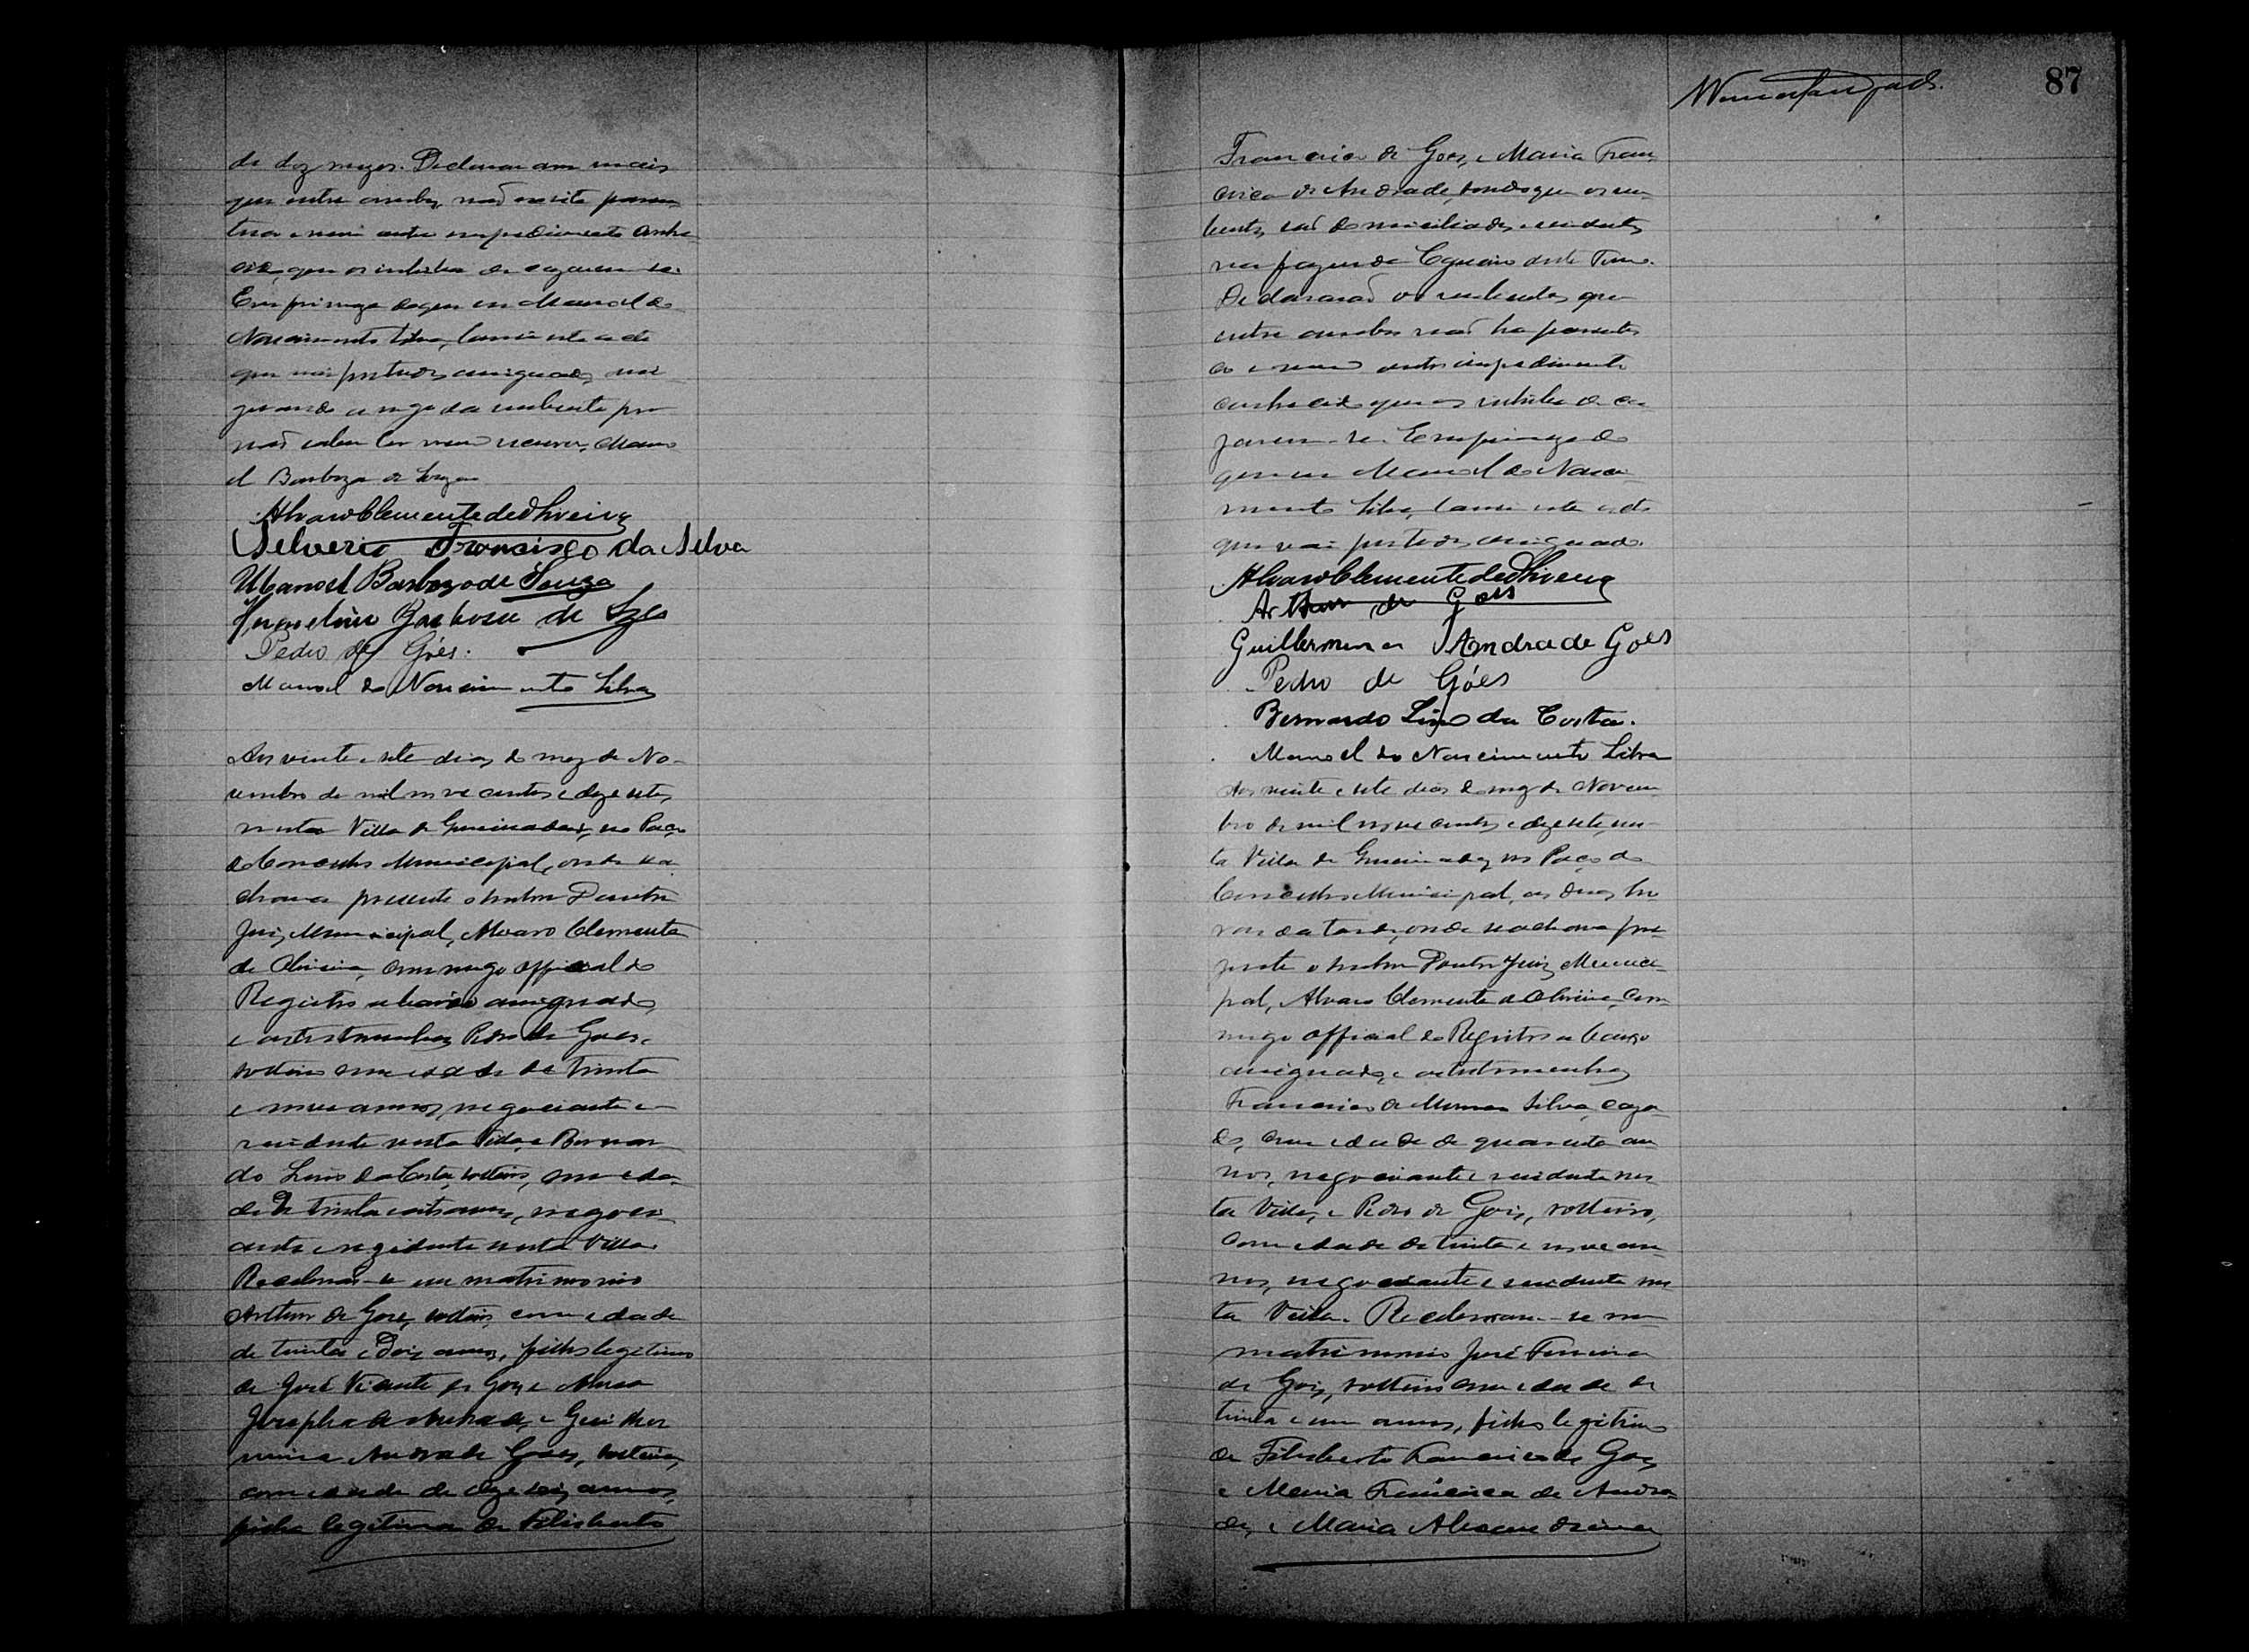 de dez mezes. Declararam mais
que entre ambos não existe paren-
tesco e nem outro impedimento conhe-
cido que os inhiba de cazarem-se.
Em firmeza do que eu Manoel do
Nascimento Silva, lancei este acto
que vai por todos assignado, assi-
gnando a rogo da nubente por
não saber ler nem escrever, Mano
el Barboza de Souza
Alvaro Clemente de Oliveira
Silverio Francisco da Silva
Manoel Barbozo de Souza
Barbosa de Sza
Pedro de Góes.
Manoel do Nascimento Silva
Aos vinte e sete dias do mez de No-
vembro de mil nove centos e dezesete,
nesta Villa de no Paço
do Concelho Municipal, onde se a
chava presente o Senhor Doutor
Juiz Municipal, Alvaro Clemente
de Oliveira, commigo official do
Registro abaixo assignado,
e as testemunhas Pedro de Goes,
solteiro com edade de trinta
e nove annos, negociante e
residente nesta Villa, e Bernar
do Lino da Costa, solteiro, com eda-
de de trinta e oito annos, negoci-
ante e rezidente nesta Villa.
Receberam-se em matrimonio
Arthur de Goes, solteiro, com edade
de trinta e dois annos, filho legitimo
de José Vicente de Goes e
Josepha de Andrade, e Guilher
mina Andrade Goes, solteira,
com edade de dezeseis annos,
filha legitima de Felisberto
87
Francisco de Goes, e Maria Fran-
cisca de Andrade, sendo que os nu-
bentes são domiciliados e residentes
na fazenda deste Termo.
Declararão os nubentes que
entre ambos não ha parentes
co e nem outro impedimento
conhecido que os inhiba de ca-
zarem-se. Em firmeza do
que eu Manoel do Nasci-
mento Silva, lancei este acto
que vai por todos assignado.
Alvaro Clemente de Oliveira
Arthur de Goes
Guilhermina Andrade Goes
Pedro de Góes
Bernardo Lino da Costa.
Manoel do Nascimento Silva
Aos vinte e sete dias do mez de Novem
bro de mil nove centos e dezesete, nes-
ta Villa de no Paço do
Concelho Municipal, as duas ho
ras da tarde, onde se achava pre-
zente o Senhor Doutor Juiz Munici-
pal, Alvaro Clemente de Oliveira, com
migo official do Registro abaixo
assignado, e as testemunhas
Francisco de Silva, caza
do, com edade de quarenta an
nos, negociante e residente nes
ta Villa, e Pedro de Gois, solteiro,
com edade de trinta e nove an
nos, negociante e residente nes
ta Villa. Receberam-se em
matrimonio José Ferreira
de Gois, solteiro com edade de
trinta e um annos, filho legitimo
de Felisberto Francisco de Goes
e Maria Francisca de Andra-
de, e Maria Alexandrina